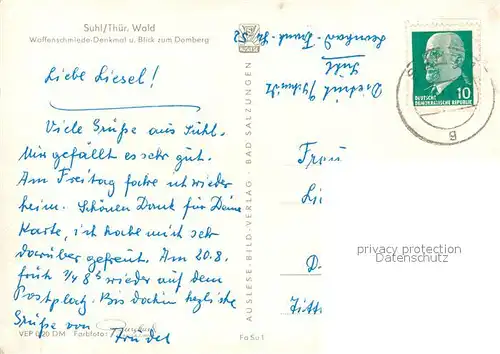 Suhl/Thür. Wald
Waffenschmiede-Denkmal u. Blick zum Domberg
Liebe Liesel!
Viele Grüße aus Suhl.
Mir gefällt es sehr gut.
Am Freitag fahre ich wieder
heim. Schönen Dank für Deine
Karte, ich habe mich sehr
darüber gefreut. Am 20.8.
früh 3/4 8 wieder auf dem
Postplatz. Bis dahin herzliche
Grüße von
Trudel
VEB 0,20 DM Farbfoto:
Fa Su 1
AUSLESE-BILD-VERLAG · BAD SALZUNGEN
Suhl
10
DEUTSCHE
DEMOKRATISCHE REPUBLIK
g
Frau
Lie
D
Zitt
privacy protection
Datenschutz